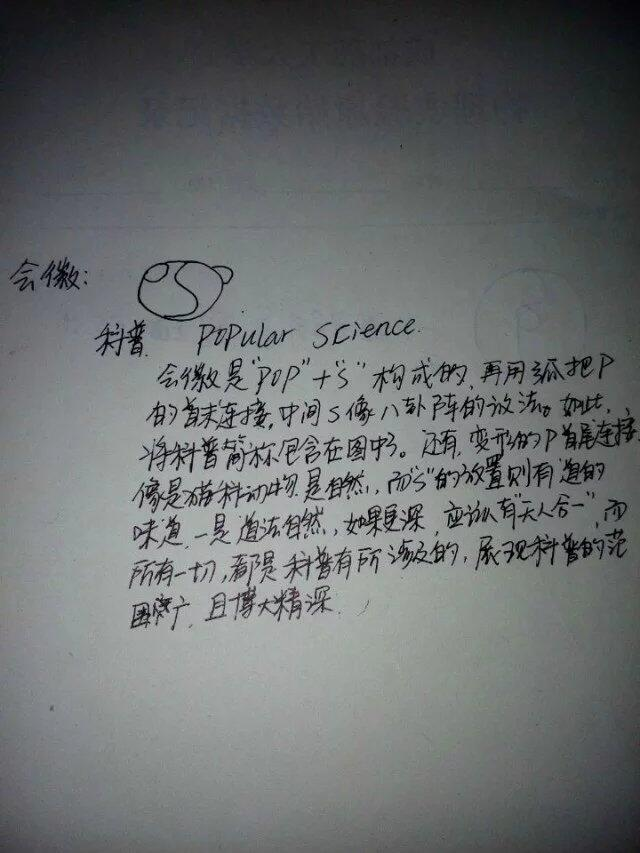 会徽：
科普. Popular Science.
会徽是"POP"+"S"构成的，再用弧把P
的首末连接，中间S像八卦阵的放法。如此，
将科普简称包含在图中了。还有，变形的P首尾连接，
像是猫科动物，是自然，而"S"的放置则有道的
味道，一是道法自然，如果更深，应该有"天人合一"，而
所有一切，都是科普有所涉及的，展现科普的范
围宽广，且博大精深.